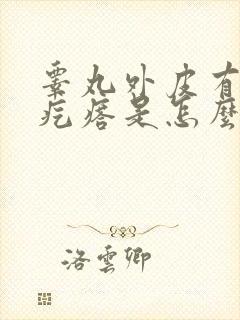 睾丸外皮有
疙瘩是怎麼
洛雲卿